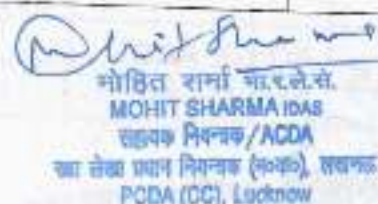 Mohit Sharma
मोहित शर्मा भा.र.ले.से.
MOHIT SHARMA IDAS
सहायक नियन्त्रक/ACDA
रक्षा लेखा प्रधान नियन्त्रक (म०क०), लखनऊ
PCDA (CC), Lucknow